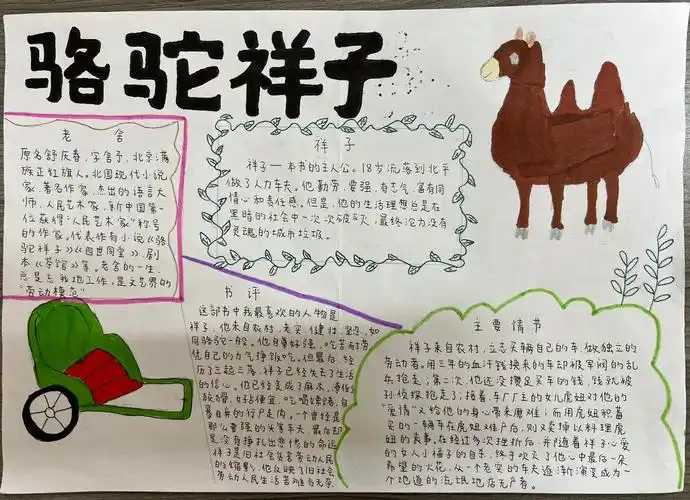 骆驼祥子
老舍
原名舒庆春,字舍予,北京满
族正红旗人。中国现代小说
家、著名作家,杰出的语言大
师、人民艺术家,新中国第一
位获得“人民艺术家”称号
的作家。代表作有小说《骆
驼祥子》《四世同堂》,剧
本《茶馆》等。老舍的一生,
总是忘我地工作,是文艺界的
“劳动模范”
祥子
祥子——本书的主人公。18岁流落到北平
做了人力车夫。他勤劳、要强、有志气、富有同
情心和责任感。但是,他的生活理想总是在
黑暗的社会中一次次破灭,最终沦为没有
灵魂的城市垃圾。
书评
这部书中我最喜欢的人物是
祥子,他来自农村,老实、健壮、坚忍,如
同骆驼一般。他自尊好强,吃苦耐劳
凭自己的力气挣饭吃。但最后,经
历了三起三落,祥子已经失去了生活
的信心。他已经变成了麻木、潦倒
狡猾、好占便宜、吃喝嫖赌,自
暴自弃的行尸走肉。一个曾经是
那么要强的头等车夫,最后却
是没有挣扎出悲惨的命运
祥子是旧社会劳苦劳动人民
的缩影,他反映了旧社会
劳动人民生活苦难与无奈
主要情节
祥子来自农村,立志买辆自己的车,做独立的
劳动者。用三年的血汗钱换来的车却被军阀的乱
兵抢走;第二次,他还没攒足买车的钱,钱就被
孙侦探抢走了;接着,车厂厂主的女儿虎妞对他的
“爱情”又给他的身心带来磨难;而用虎妞积蓄
买的一辆车在虎妞难产后,则又卖掉以料理虎
妞的丧事。在经过多次挫折后,并随着祥子心爱
的女人小福子的自杀,终于吹灭了他心中最后一朵
希望的火花,从一个老实的车夫逐渐演变成为一
个地道的流氓地痞无产者。